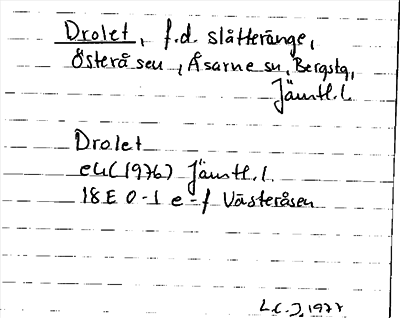 Drolet, f.d. slåtteränge,
Österåsen, Åsarne sn, Bergstg,
Jämtl. l.
Drolet
ek (1976) Jämtl. l.
18E 0-1 e-f Västeråsen
L.C.J. 1977